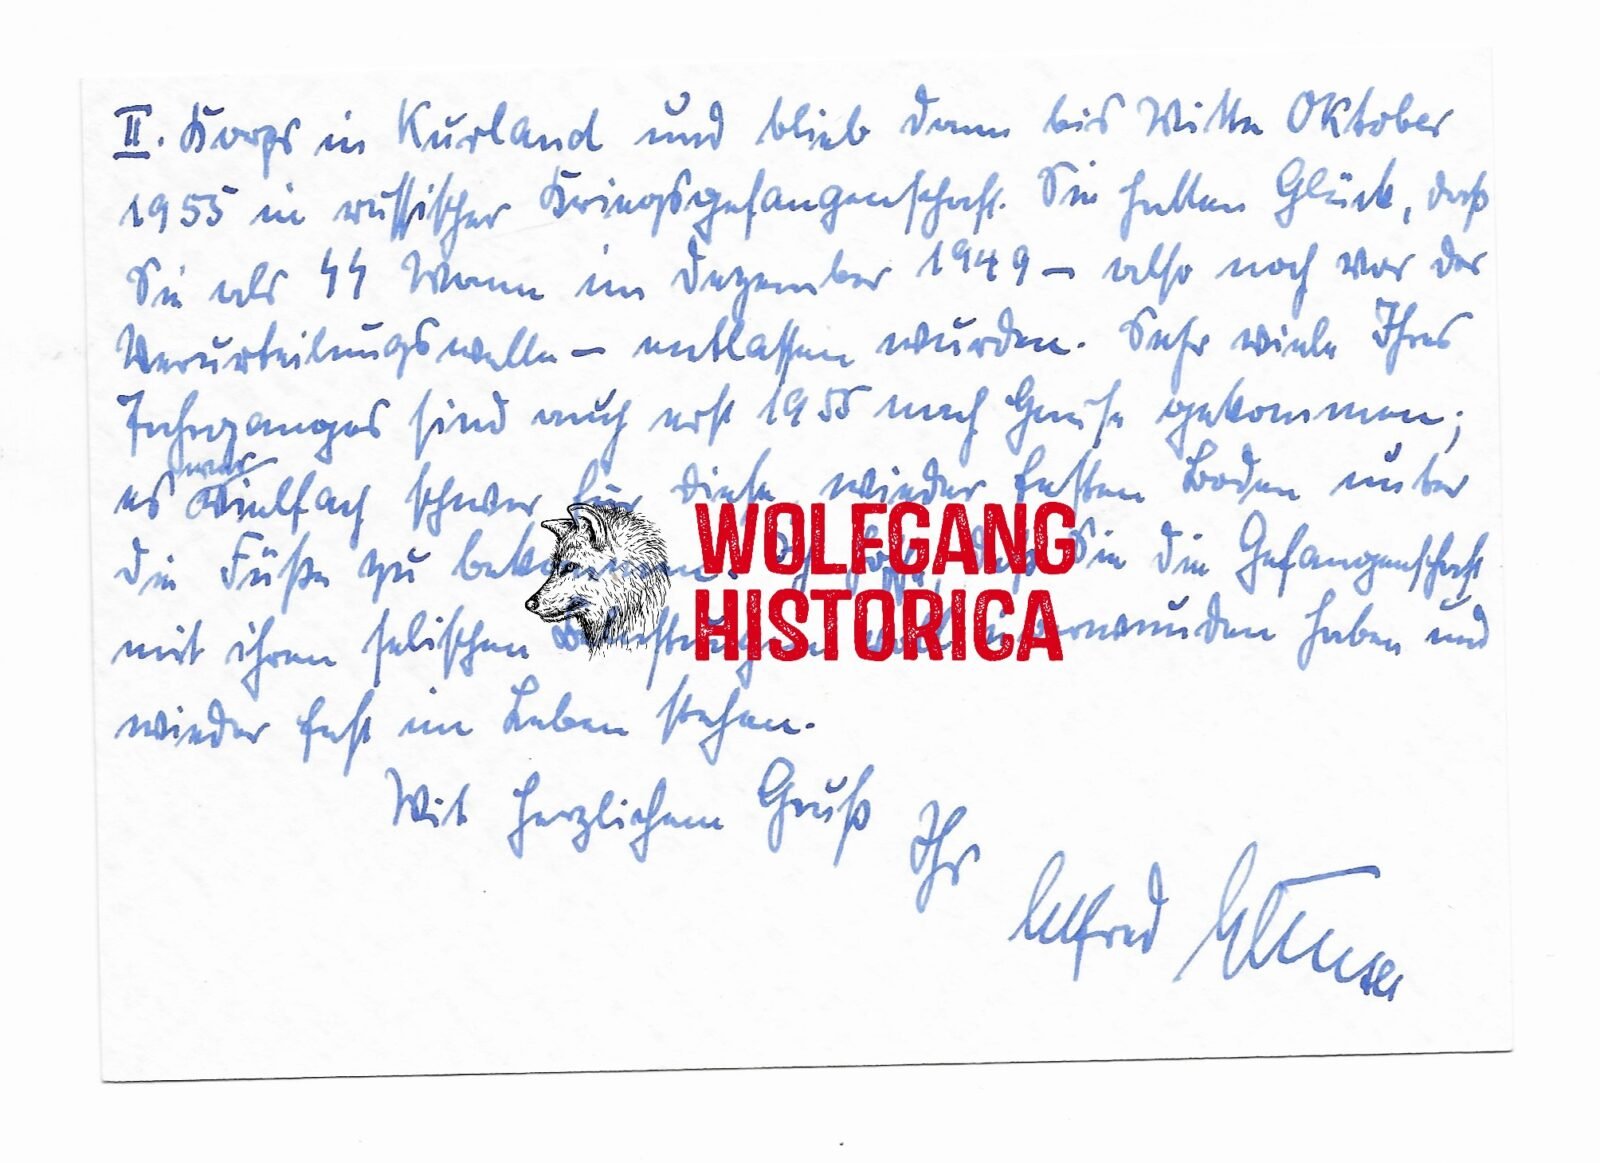 II. Korps in Kurland und blieb dann bis Mitte Oktober
1955 in russischer Kriegsgefangenschaft. Sie hatten Glück, daß
Sie als SS Mann im Dezember 1949 – also noch vor der
Verurteilungswelle – entlassen wurden. Sehr viele Ihres
Jahrganges sind auch erst 1955 nach Hause gekommen;
war
es vielfach schwer für diese, wieder festen Boden unter
die Füße zu bekommen. Ich hoffe, daß Sie die Gefangenschaft
mit ihren selischen Belastungen überwunden haben und
wieder fest im Leben stehen.
Mit herzlichem Gruß
Ihr
Alfred
WOLFGANG
HISTORICA